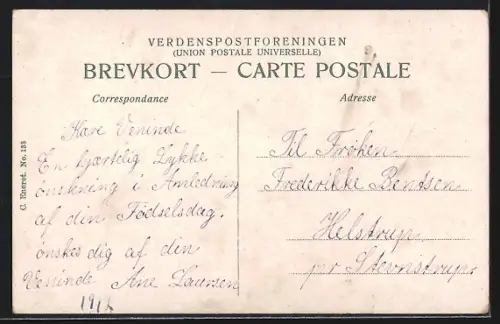 VERDENSPOSTFORENINGEN
(UNION POSTALE UNIVERSELLE)
BREVKORT — CARTE POSTALE
Correspondance
Adresse
Kære Veninde
En hjærtelig Lykke
ønskning i Anledning
af din Fødselsdag.
ønskes dig af den
Veninde Ane Laursen
1914
Til Frøken
Frederikke Bentsen
Helstrup
pr Stevnstrup
C. Eneret. No. 133